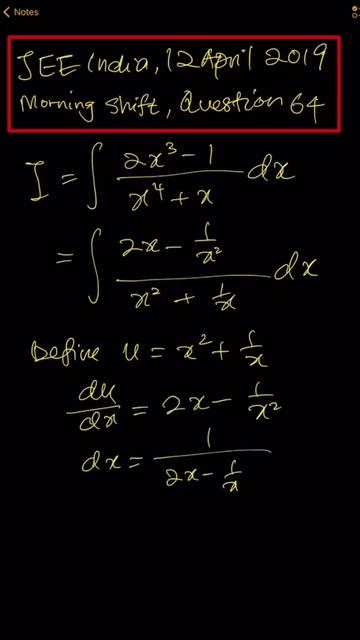 < Notes
JEE India, 12 April 2019
Morning Shift, Question 64
I = ∫ (2x³ - 1)/(x⁴ + x) dx
= ∫ (2x - 1/x²)/(x² + 1/x) dx
Define u = x² + 1/x
du/dx = 2x - 1/x²
dx = 1/(2x - 1/x)